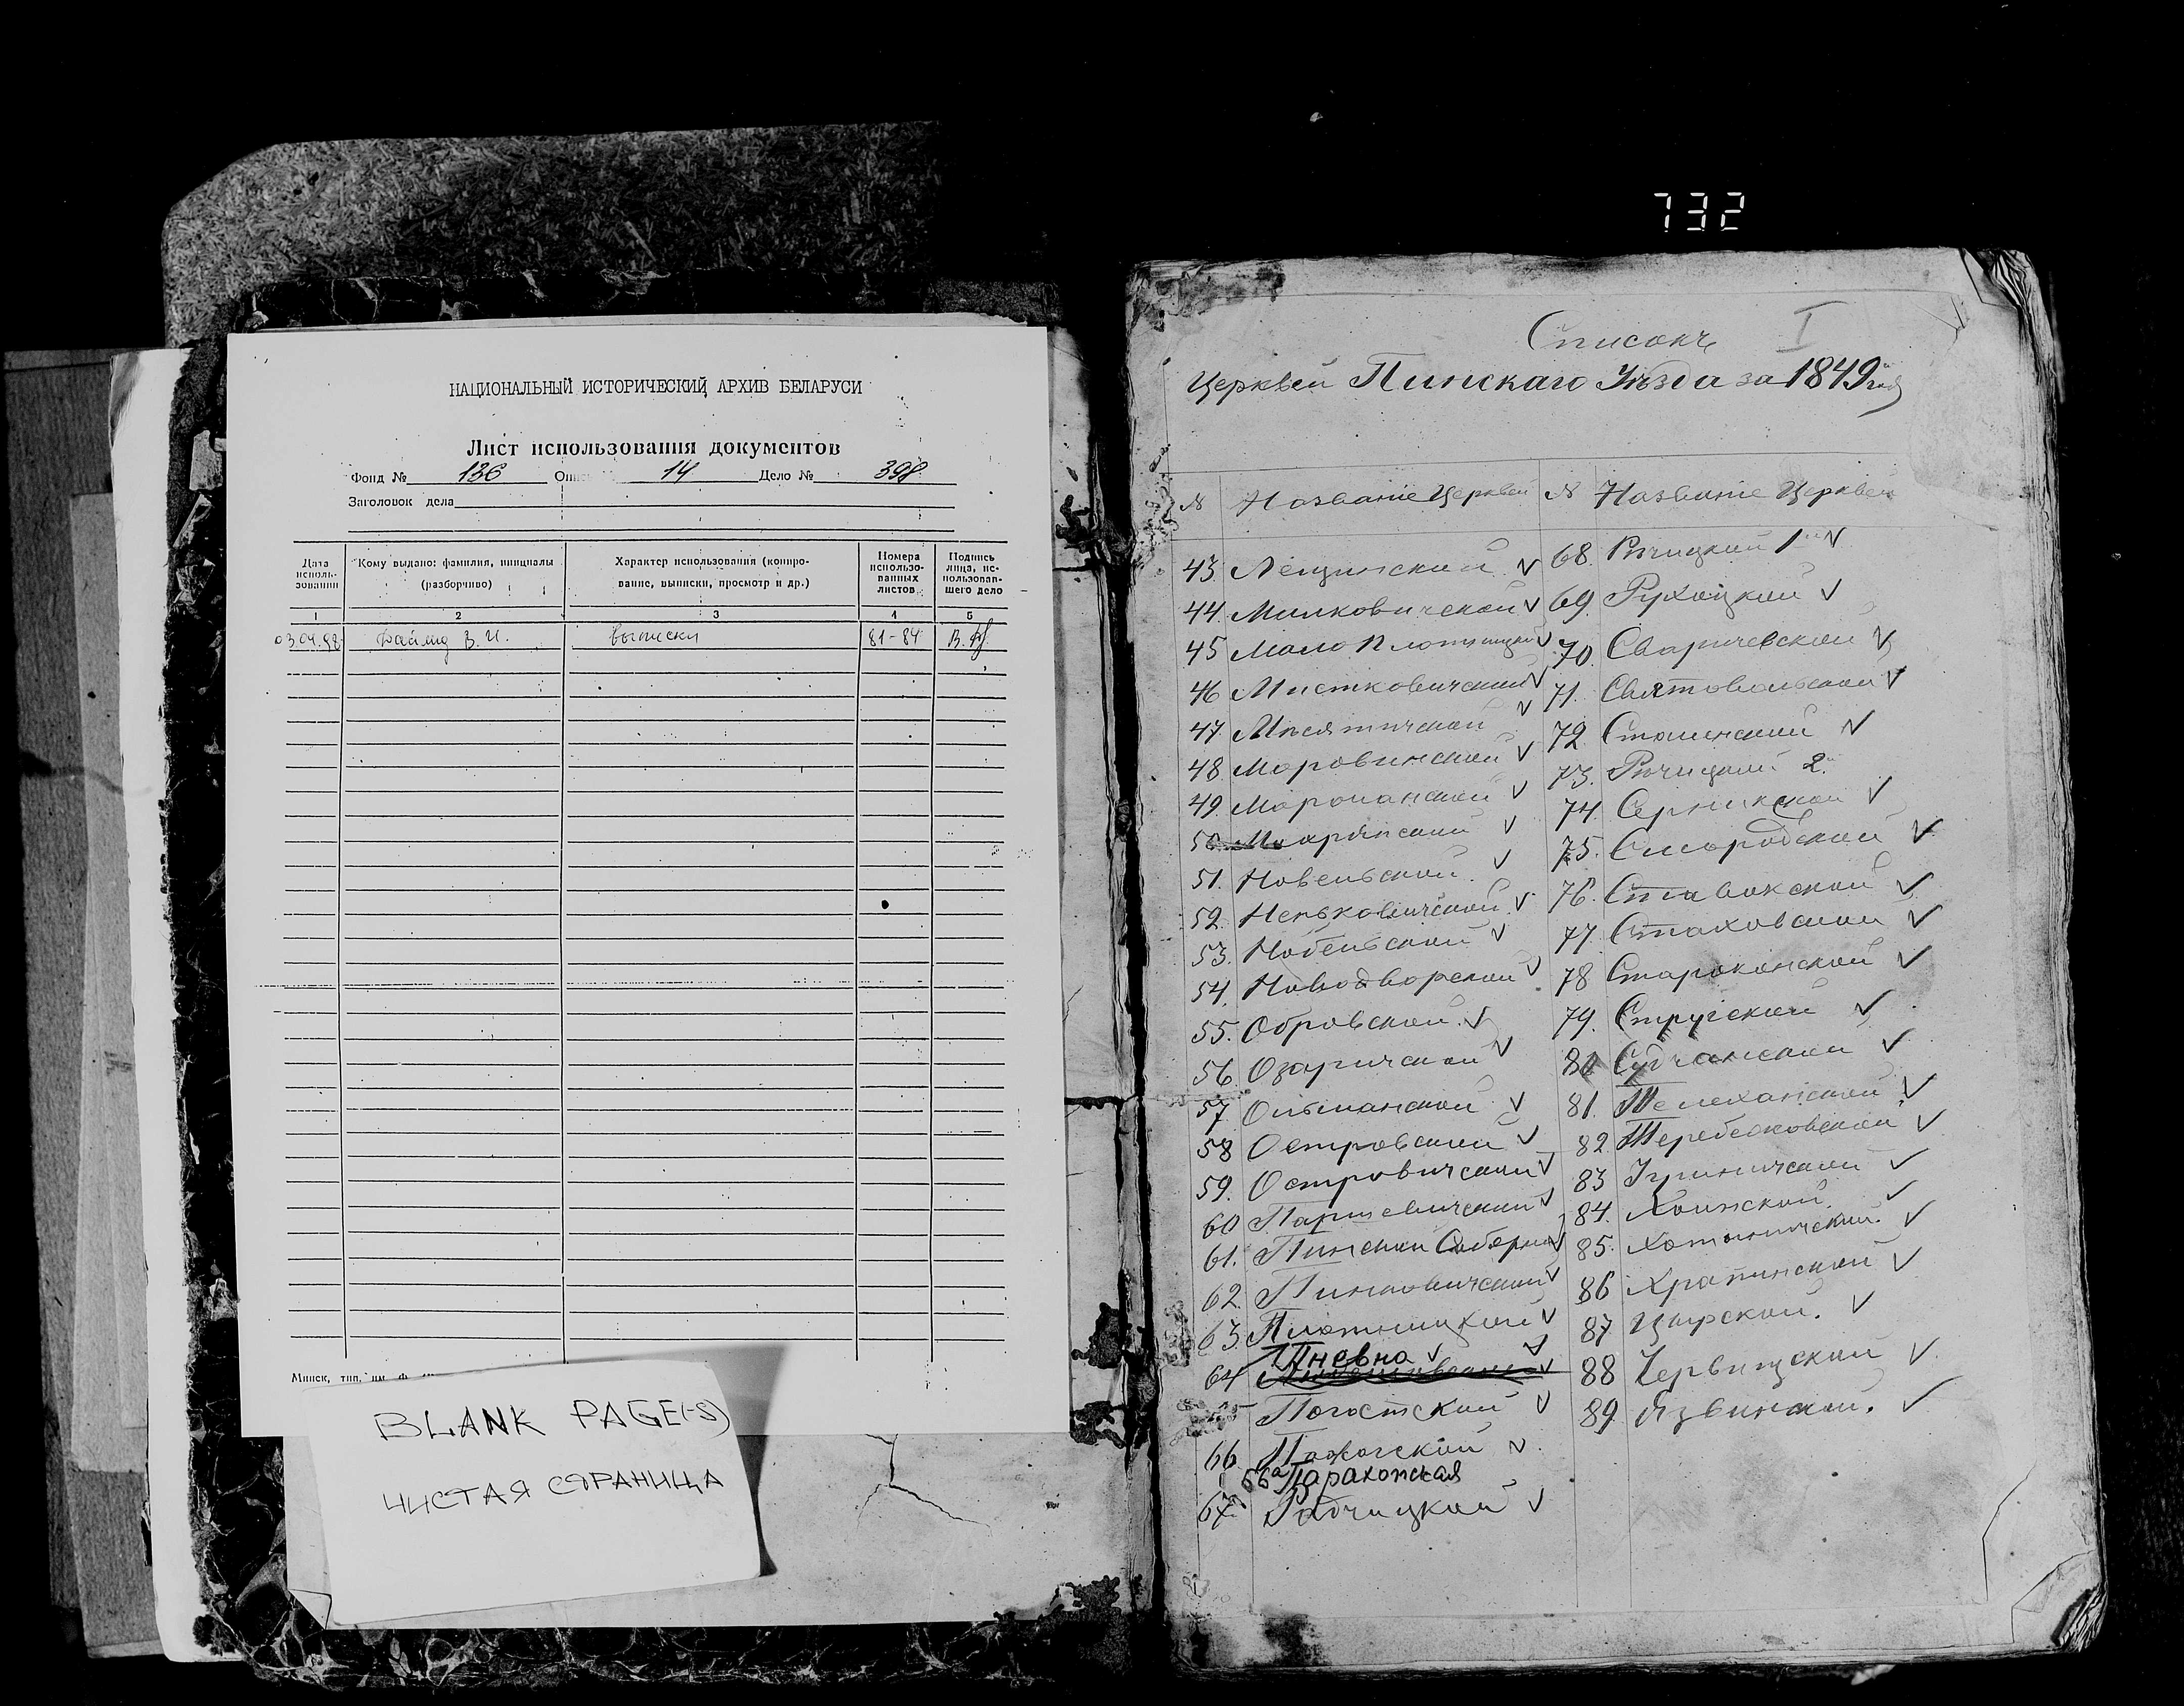 732
НАЦИОНАЛЬНЫЙ ИСТОРИЧЕСКИЙ АРХИВ БЕЛАРУСИ
Лист использования документов
Фонд № 136 Опись 14 Дело № 398
Заголовок дела
Дата использования
Кому выдано: фамилия, инициалы (разборчиво)
Характер использования (копирование, выписки, просмотр и др.)
Номера использованных листов
Подпись лица, использовавшего дело
1 2 3 4 5
03.04.98 В. И. выписки 81-84
Минск, тип. им. Ф.
BLANK PAGE(-S)
ЧИСТАЯ СТРАНИЦА
I
Списокъ
Церквей Пинскаго Уѣзда за 1849 годъ
№ Названіе Церквей № Названіе Церквей
43 Лещинской
44. Милковичской
45 Мало Плотницкой
46 Мистковичской
47. Мѣсятичской
48 Моровинской
49. Морочанской
50.
51. Новельской
52. Неньковичской
53. Нобельской
54. Новодворской
55. Обровской
56 Озаричской
57 Ольманской
58 Островской
59. Островичской
60 Паршевичской
61. Пинской Соборной
62. Пинковичской
63. Плотницкой
64 Пневно
65 Погостской
66. Пожогской
66а Парахонская
67. Радчицкой
68. Рѣчицкой 1
69. Рухоцкой
70. Сваричевской
71. Святовольской
72. Столинской
73. Рѣчицкой 2
74. Серникской
75. Смородской
76. Ставокской
77. Стаховской
78 Староконской
79. Стругской
80 Судченской
81. Телеханской
82. Теребежовской
83 Угриничской
84. Хоинской
85. Хотыничской
86 Храпинской
87 Цырской.
88 Червищской
89. Язвинской.